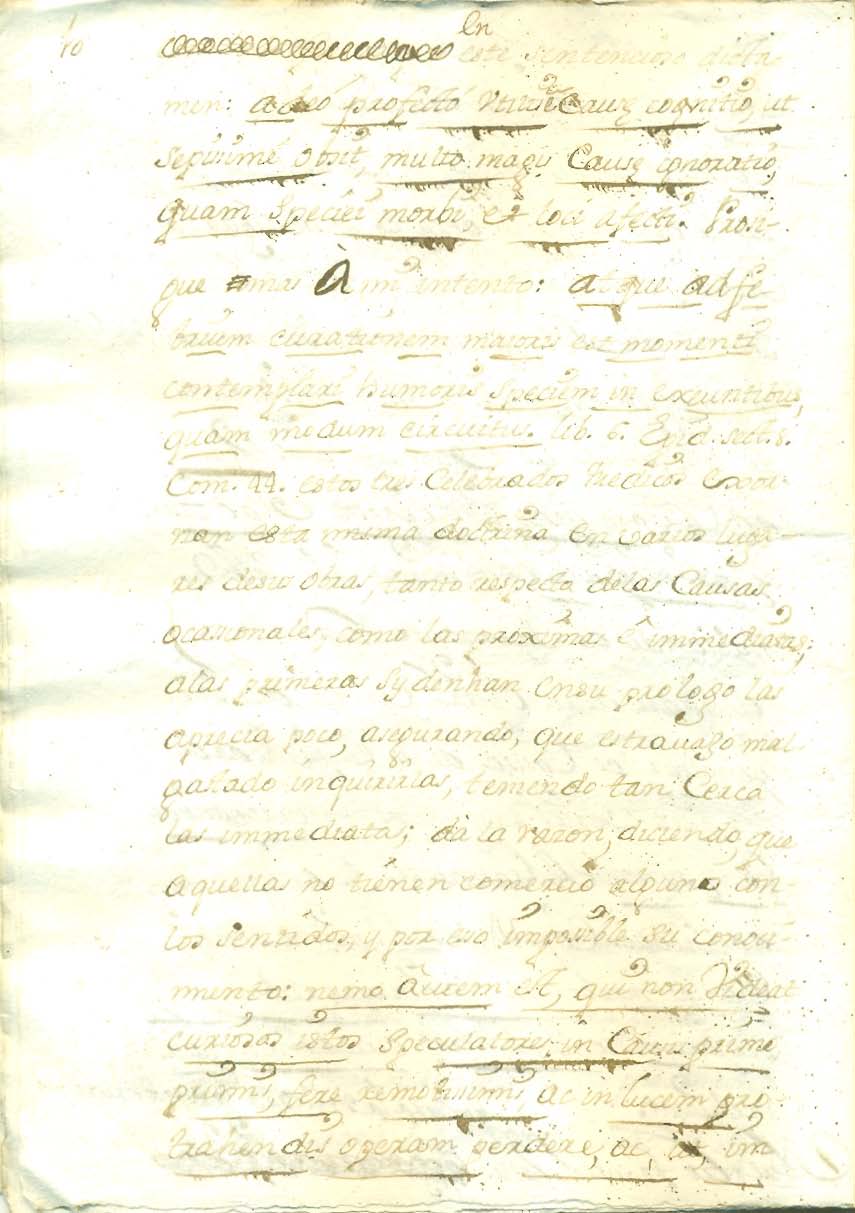 10
en
este sentencioso dicta-
men: adeó profectó Utilis Causę cognitio, ut
sepissimé obsit, multo magis Causę ignoratio,
quam Speciei morbi, et loci afecti. Prosi-
gue mas À mi intento: atque ad fe-
brium curationem maioris est momenti
contemplari humoris speciem in exeuntibus,
quam modum circuitus. lib. 6. Epid. sect. 8.
Com. 44. estos tres Celebrados Medicos exor-
nan esta misma doctrina en varios luga-
res desus obras, tanto respecto delas Causas
ocasionales, como las proximas ê immediatas;
alas primeras Sydenhan ensu prologo las
aprecia poco, asegurando, que es travago mal
gastado inquirirlas, teniendo tan Cerca
las immediatas; dà la razon, diciendo, que
aquellas no tienen comercio alguno con
los sentidos, y por eso impossible su conoci-
miento: nemo autem est, qui non Videat
curiosos istos speculatores in Causis prime
primis, fere remotissimis, ac in lucem pro-
trahendis operam perdere, ac, im